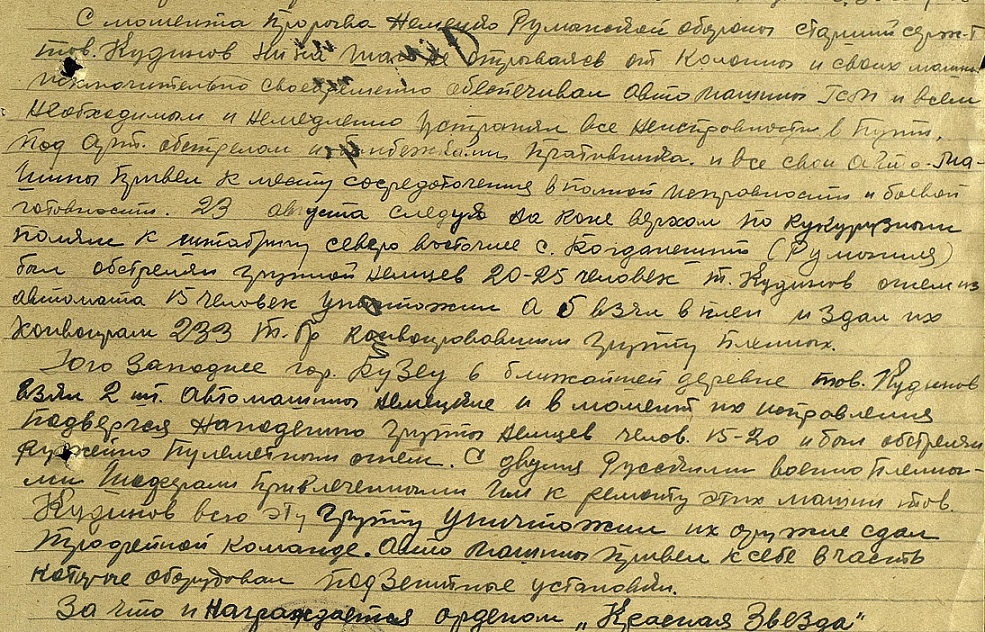 С момента Прорыва Немецко Румынской обороны старший серж-т
тов. Кудинов ни на шаг не отрываяся от Колонны и своих машин
исключительно своевременно обеспечивал автомашины ГСМ и всем
необходимым и немедленно устранял все неисправности в Пути,
Под Арт. обстрелом и бомбежками Пративника. и все свои Авто-ма-
шины Привел к месту сосредоточения в полной исправности и боевой
готовности. 23 августа следуя на коне верхом по кукурузным
полям к штабригу северо восточнее с. (Румыния)
был обстрелян группой немцев 20-25 человек т. Кудинов огнем из
автомата 15 человек уничтожил А 5 взял в плен и здал их
Конвоирам 233 Т.бр конвоировавшим группу Пленных.
Юго Западнее гор. Бузеу в ближайшей деревне тов. Кудинов
взял 2 шт. Автомашины немецкие и в момент их исправления
подвергся нападению группы немцев челов. 15-20 и был обстрелян
Ружейно Пулеметным огнем. С двумя Русскими военно Пленны-
ми Шоферами Привлеченными им к ремонту этих машин тов.
Кудинов всю эту группу уничтожил их оружие сдал
Трофейной команде. Авто машины привел к себе в часть
которые оборудовал под Зенитные установки.
За что и Награждается орденом „Красная Звезда"